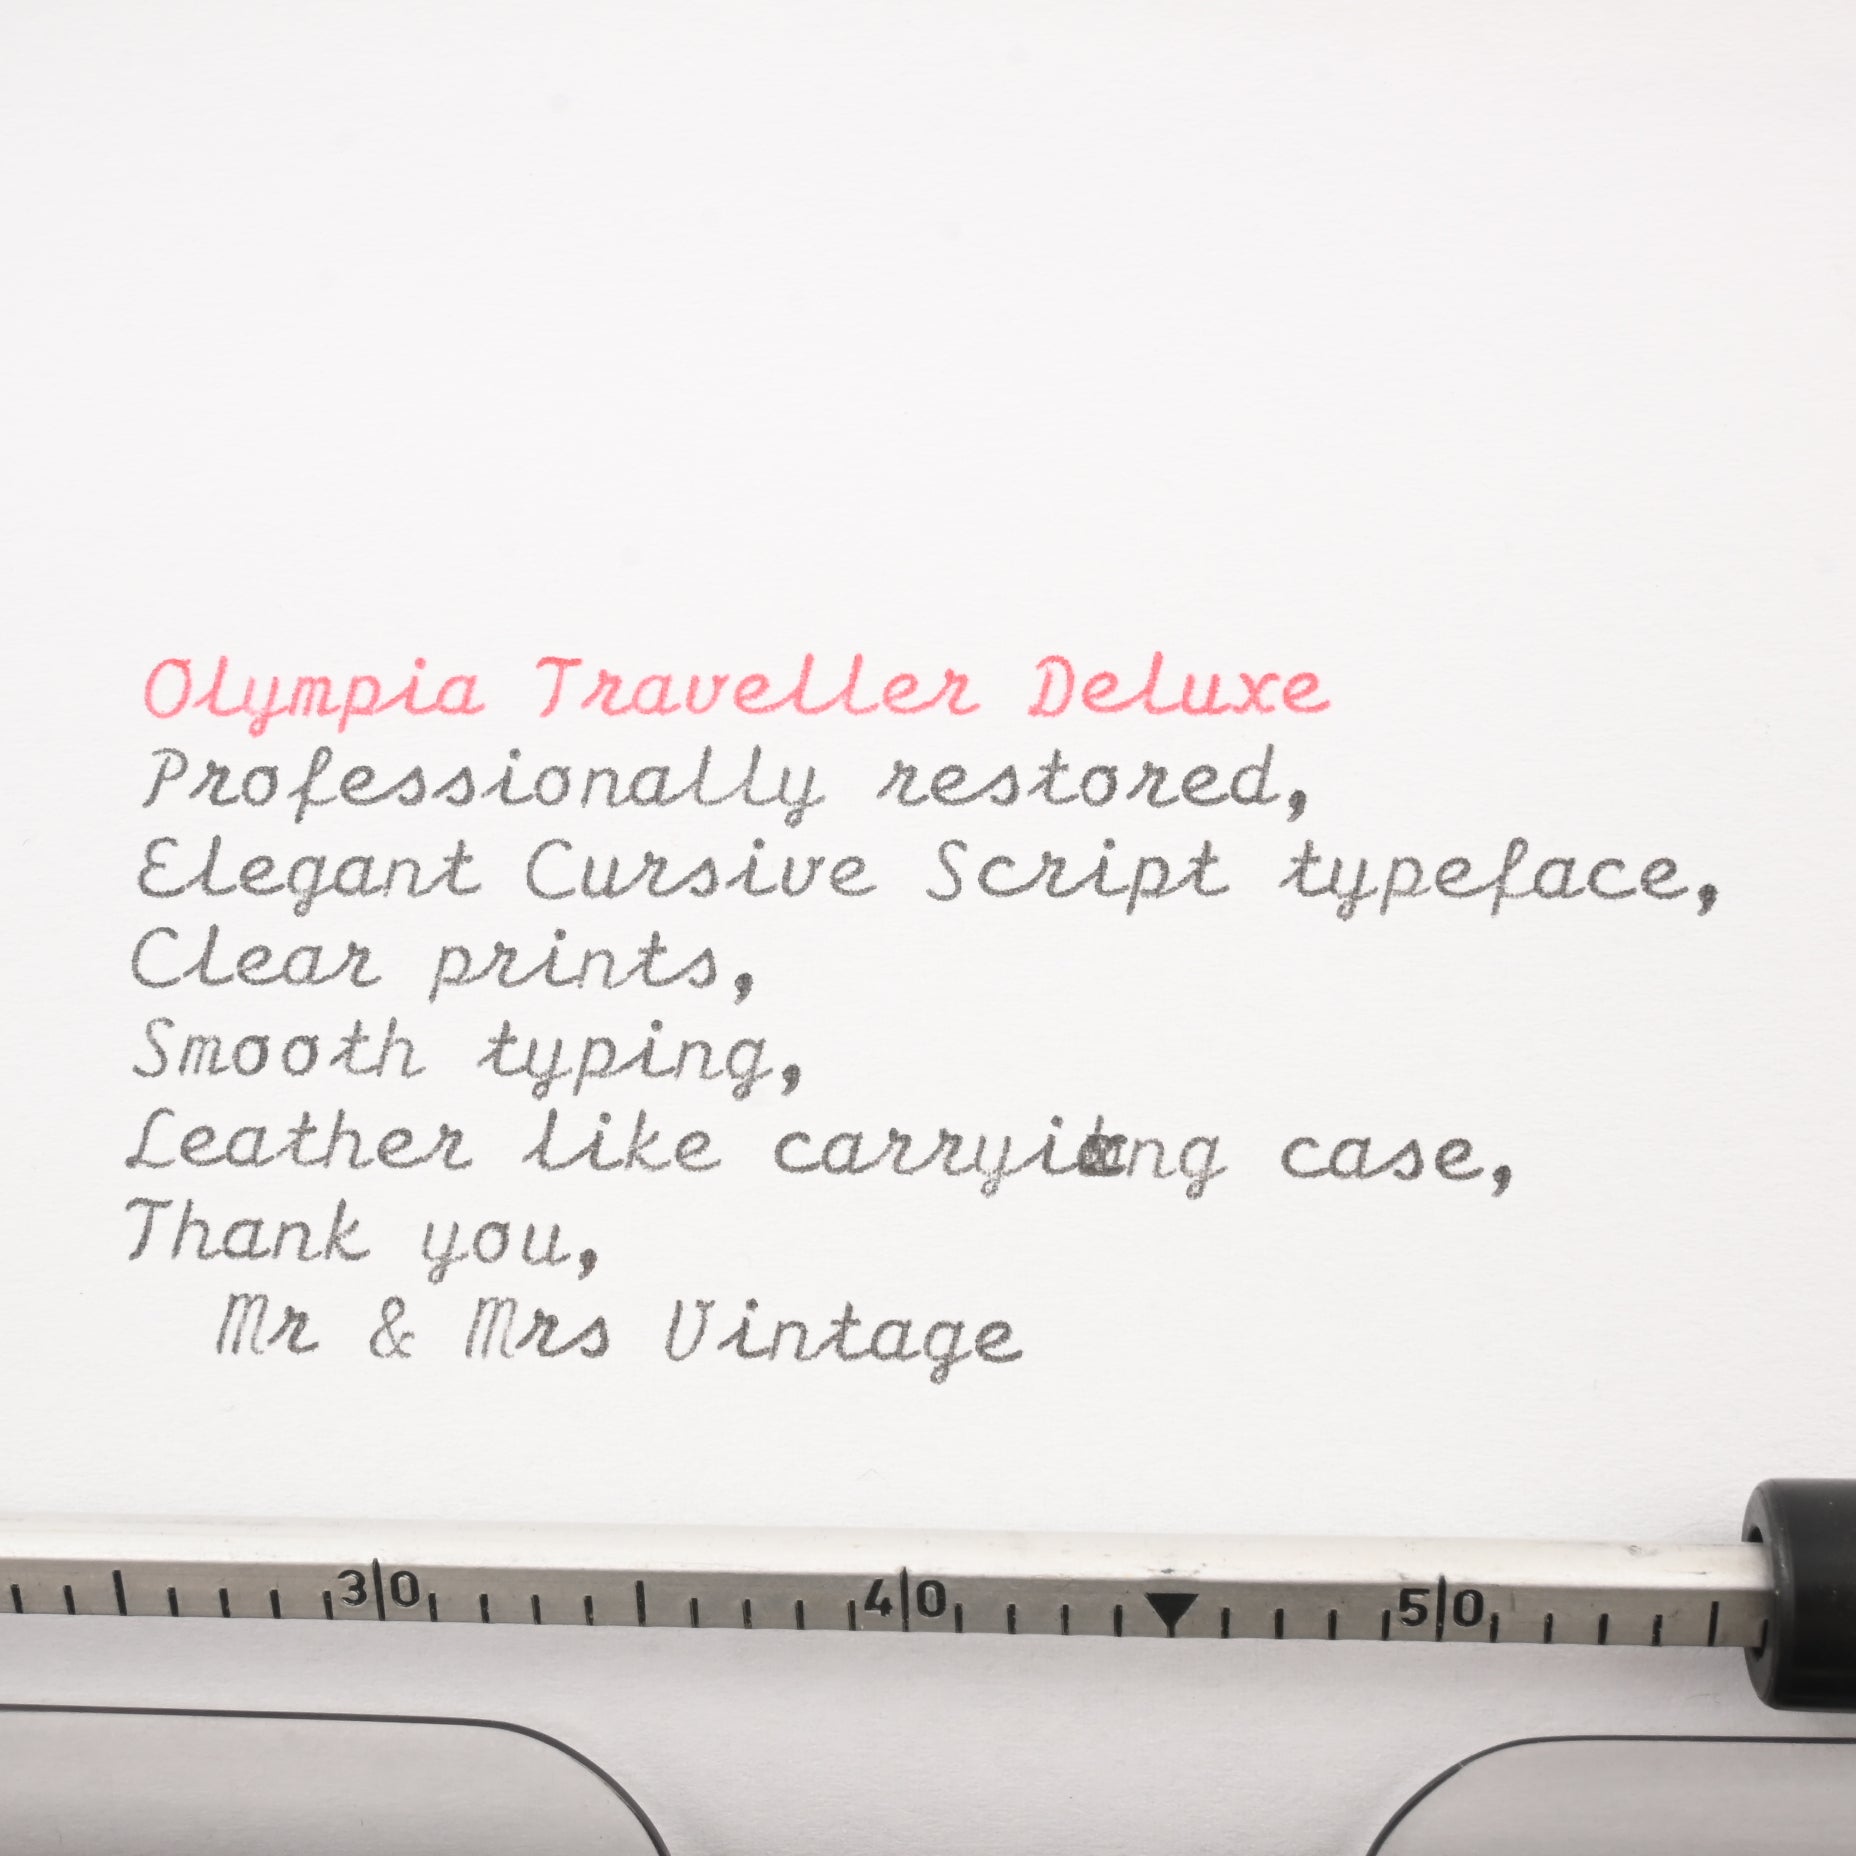 Olympia Traveller Deluxe
Professionally restored,
Elegant Cursive Script typeface,
Clear prints,
Smooth typing,
Leather like case,
Thank you,
Mr & Mrs Vintage
30 40 50